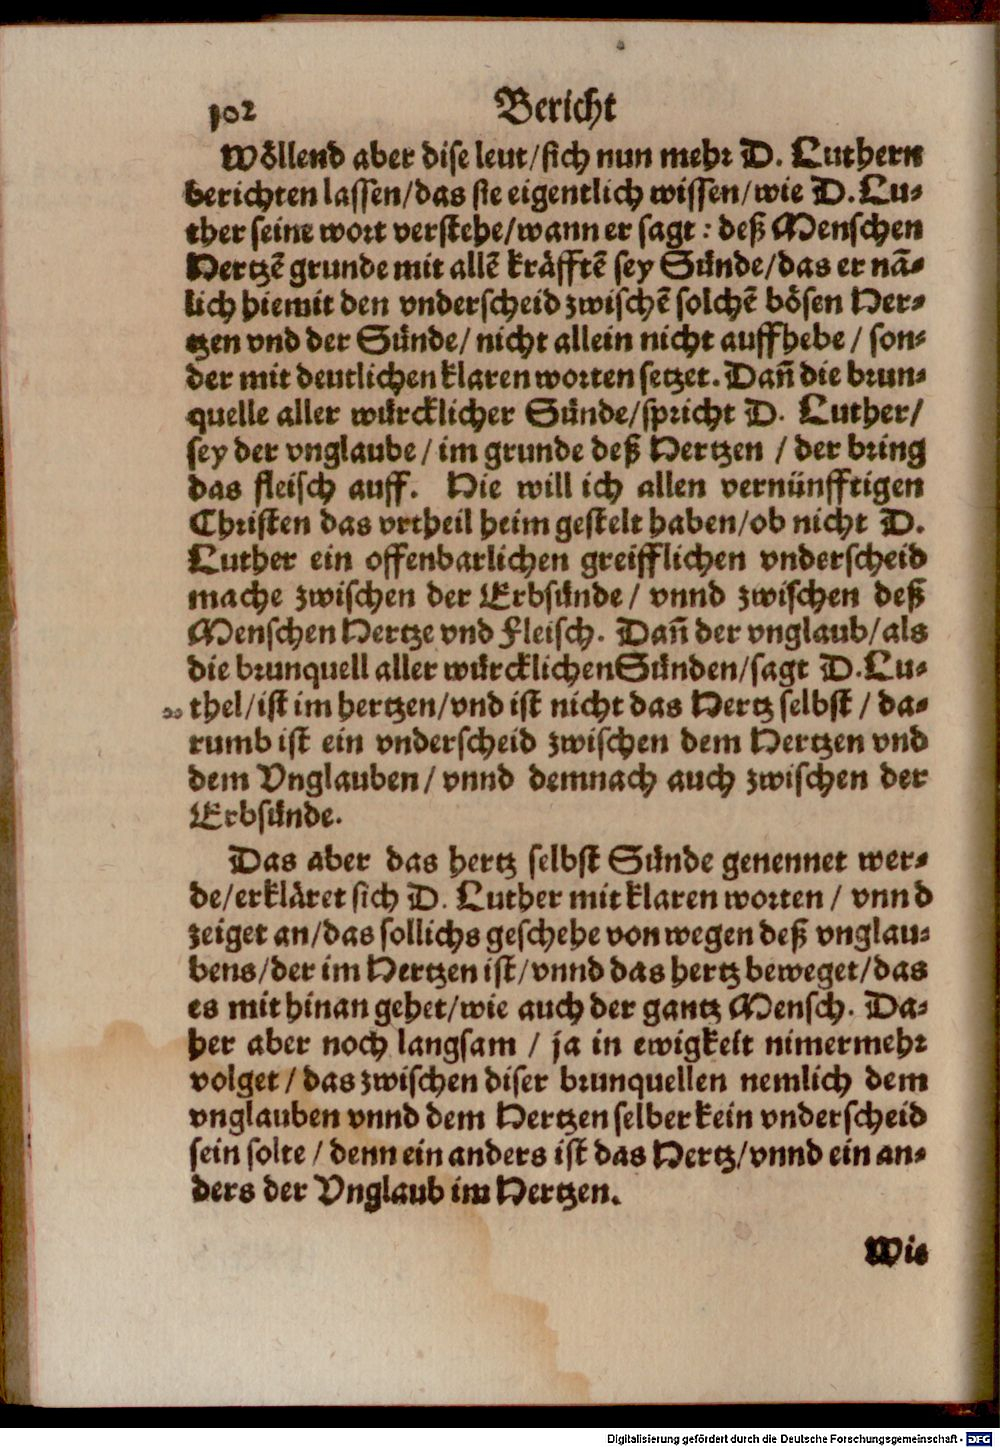 102 Bericht
Wöllend aber dise leut/sich nun mehr D. Luthern
berichten lassen/das sie eigentlich wissen/wie D. Lu-
ther seine wort verstehe/wann er sagt: deß Menschen
Hertzē grunde mit allē kräfftē sey Sünde/das er nā-
lich hiemit den vnderscheid zwischē solchē bösen Her-
tzen vnd der Sünde/ nicht allein nicht auffhebe / son-
der mit deutlichen klaren worten setzet. Dañ die brun-
quelle aller würcklicher Sünde/spricht D. Luther/
sey der vnglaube / im grunde deß Hertzen / der bring
das fleisch auff. Hie will ich allen vernünfftigen
Christen das vrtheil heim gestelt haben/ob nicht D.
Luther ein offenbarlichen greifflichen vnderscheid
mache zwischen der Erbsünde / vnnd zwischen deß
Menschen Hertze vnd Fleisch. Dañ der vnglaub/als
die brunquell aller würcklichen Sünden/sagt D. Lu-
thel/ist im hertzen/vnd ist nicht das Hertz selbst / da-
rumb ist ein vnderscheid zwischen dem Hertzen vnd
dem Vnglauben / vnnd demnach auch zwischen der
Erbsünde.
Das aber das hertz selbst Sünde genennet wer-
de/erkläret sich D. Luther mit klaren worten / vnnd
zeiget an/das sollichs geschehe von wegen deß vnglau-
bens/der im Hertzen ist/vnnd das hertz beweget/das
es mit hinan gehet/wie auch der gantz Mensch. Da-
her aber noch langsam / ja in ewigkeit nimermehr
volget / das zwischen diser brunquellen nemlich dem
vnglauben vnnd dem Hertzen selber kein vnderscheid
sein solte / denn ein anders ist das Hertz/vnnd ein an-
ders der Vnglaub im Hertzen.
Wie
Digitalisierung gefördert durch die Deutsche Forschungsgemeinschaft - DFG